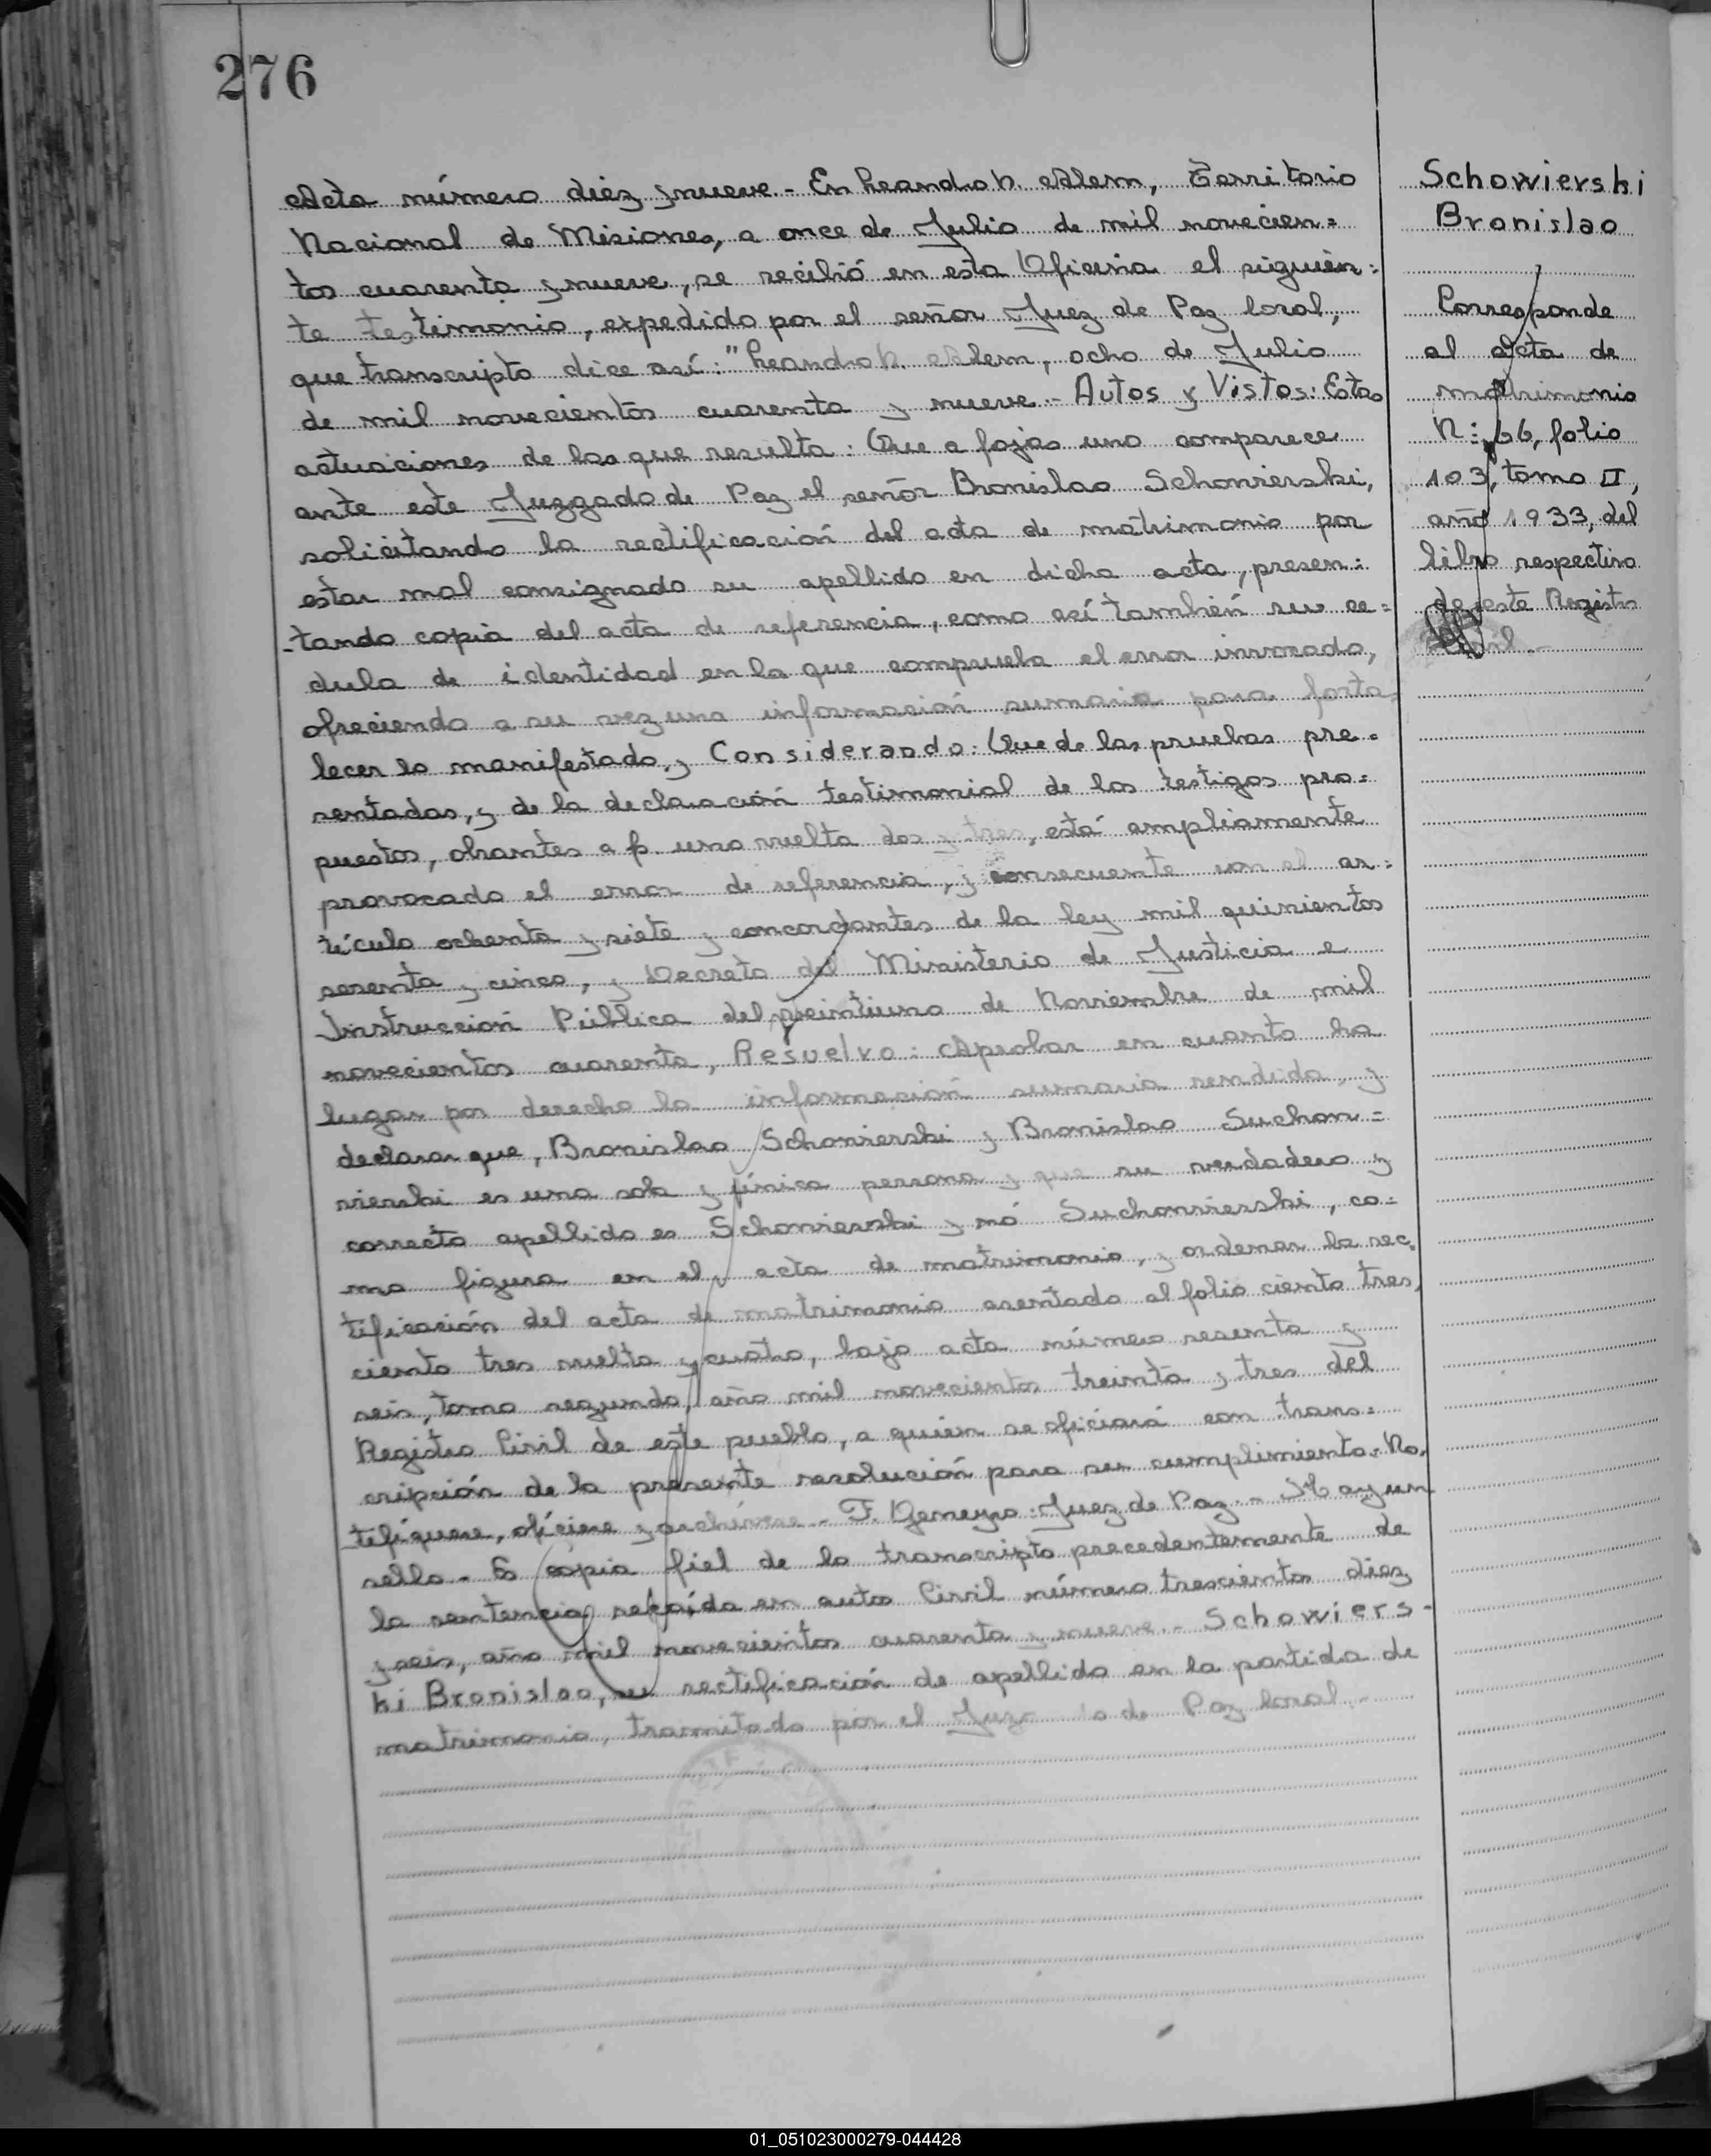 276
Acta número diez y nueve.- En Leandro N. Alem, Territorio
Nacional de Misiones, a once de Julio de mil novecien=
tos cuarenta y nueve, se recibió en esta Oficina el siguien=
te testimonio, expedido por el señor Juez de Paz local,
que transcripto dice así: "Leandro N. Alem, ocho de Julio
de mil novecientos cuarenta y nueve.- Autos y Vistos: Estas
actuaciones de las que resulta: Que a fojas uno comparece
ante este Juzgado de Paz el señor Bronislao Schowierski,
solicitando la rectificación del acta de matrimonio por
estar mal consignado su apellido en dicha acta, presen=
-tando copia del acta de referencia, como así también su ce=
dula de identidad en la que comprueba el error invocado,
ofreciendo a su vez una información sumaria para forta=
lecer lo manifestado, y Considerando: Que de las pruebas pre=
sentadas, y de la declaración testimonial de los testigos pro=
puestos, obrantes a f. uno vuelta dos y tres, está ampliamente
provocado el error de referencia, y consecuente con el ar=
tículo ochenta y siete y concordantes de la ley mil quinientos
sesenta y cinco, y Decreto del Ministerio de Justicia e
Instrucción Pública del veintiuno de Noviembre de mil
novecientos cuarenta, Resuelvo: Aprobar en cuanto ha
lugar por derecho la información sumaria rendida, y
declarar que, Bronislao Schowierski y Bronislao Suchow=
vierski es una sola y única persona y que su verdadero y
correcto apellido es Schowierski y nó Suchowierski, co=
mo figura en el acta de matrimonio, y ordenar la rec=
tificación del acta de matrimonio asentada al folio ciento tres,
ciento tres vuelta y cuatro, bajo acta número sesenta y
seis, tomo segundo, año mil novecientos treinta y tres del
Registro Civil de este pueblo, a quien se oficiará con trans=
cripción de la presente resolución para su cumplimiento.- No=
tifíquese, ofíciese y archívese.- F. Juez de Paz.- Hay un
sello.- Es copia fiel de lo transcripto precedentemente de
la sentencia recaída en autos Civil número trescientos diez
y seis, año mil novecientos cuarenta y nueve.- Schowiers-
ki Bronislao, su rectificación de apellido en la partida de
matrimonio, tramitado por el Juzgado de Paz local.-
Schowierski
Bronislao
Corresponde
al acta de
matrimonio
N: 66, folio
103, tomo II,
año 1933, del
libro respectivo
de este Registro
Civil.-
01_051023000279-044428